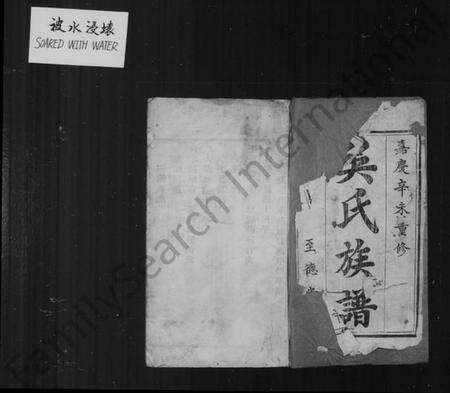 被水浸壞
SOARED WITH WATER
嘉慶辛未重修
吳氏族譜
至德
FamilySearch International